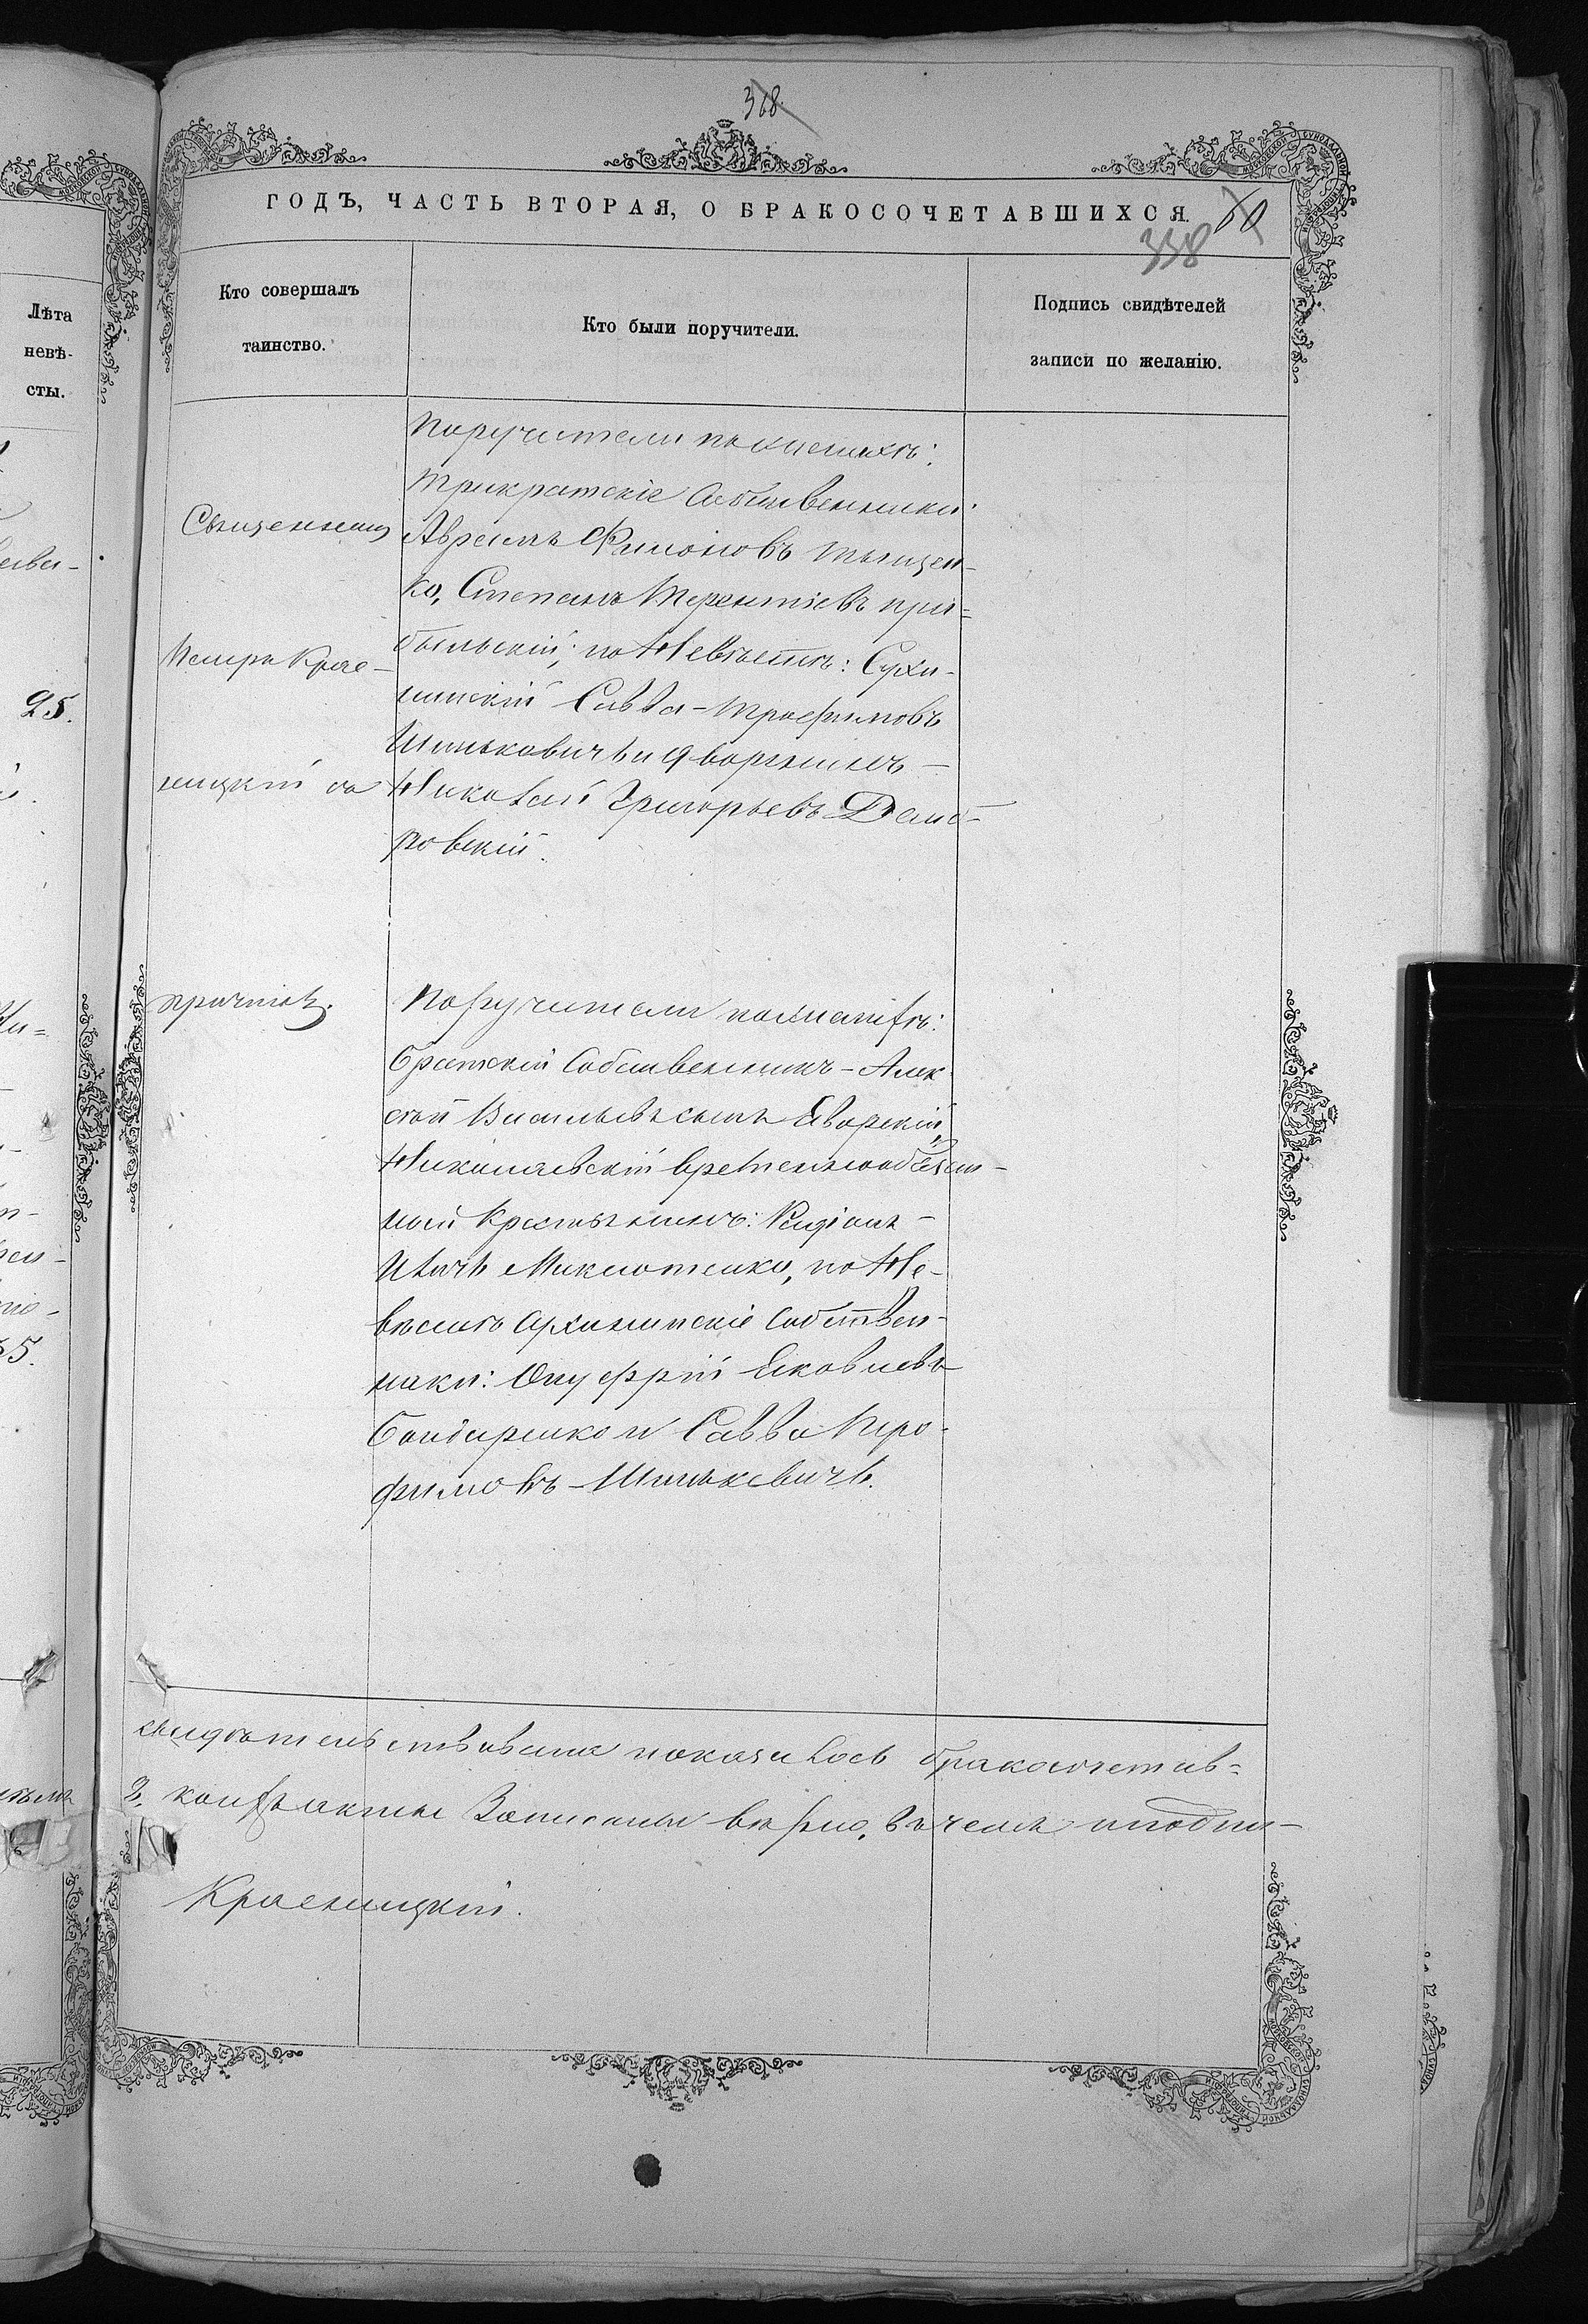 368.
ГОДЪ, ЧАСТЬ ВТОРАЯ, О БРАКОСОЧЕТАВШИХСЯ.
338
Лѣта
невѣ-
сты.
25.
Кто совершалъ
таинство.
Кто были поручители.
Подпись свидѣтелей
записи по желанію.
Священникъ
Петръ Крас-
ницкій съ
причтомъ.
Поручители по женихѣ:
Трикратскіе собственники:
Авраамъ Филоновъ Тыщен-
ко, Степанъ Терентіевъ При-
быльскій; по Невѣстѣ: Сухи-
нинскій Савва Трофимовъ
Шинькевичъ и дворянинъ
Николай Григорьевъ Домб-
ровскій.
Поручители по женихѣ:
Братскій Собственникъ - Алек
сѣй Васильевъ сынъ Яворскій,
Николаевскій временнообязан-
ной Крестьянинъ:
Микитенко, по Не-
вѣстѣ Архининскіе собствен-
ники: Онуфрій Яковлевъ
Бондаренко и Савва Тро-
фимовъ Шинькевичъ.
свидѣтельствованія показалось бракосочетав-
записаны вѣрно, въ чемъ и подпи-
Красницкій.